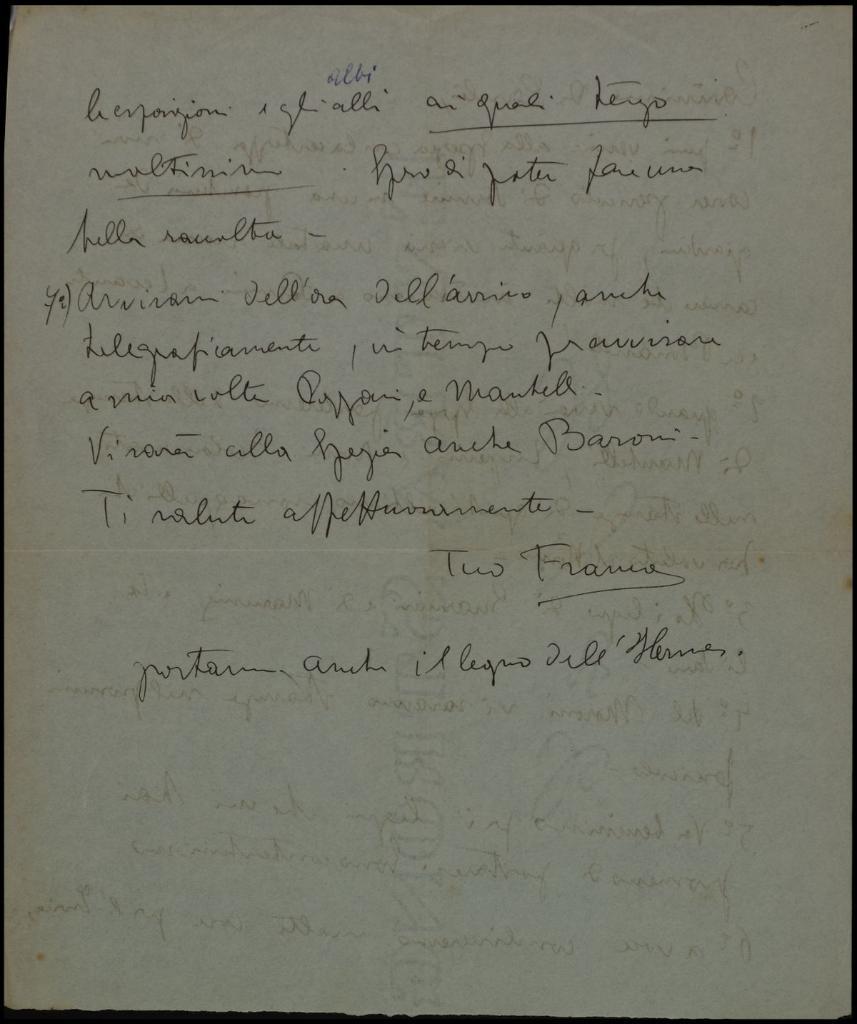 albi
le esposizioni e gli albi ai quali tengo
moltissimo. Spero di poter fare una
bella raccolta -
7a) Avvisami dell'ora dell'arrivo, anche
telegraficamente, in tempo per avvisare
a mia volta Pozzoni, e Mantelli -
Vi sarà alla Spezia anche Baroni -
Ti saluto affettuosamente -
Tuo Franco
portami anche il legno dell'Hermes.